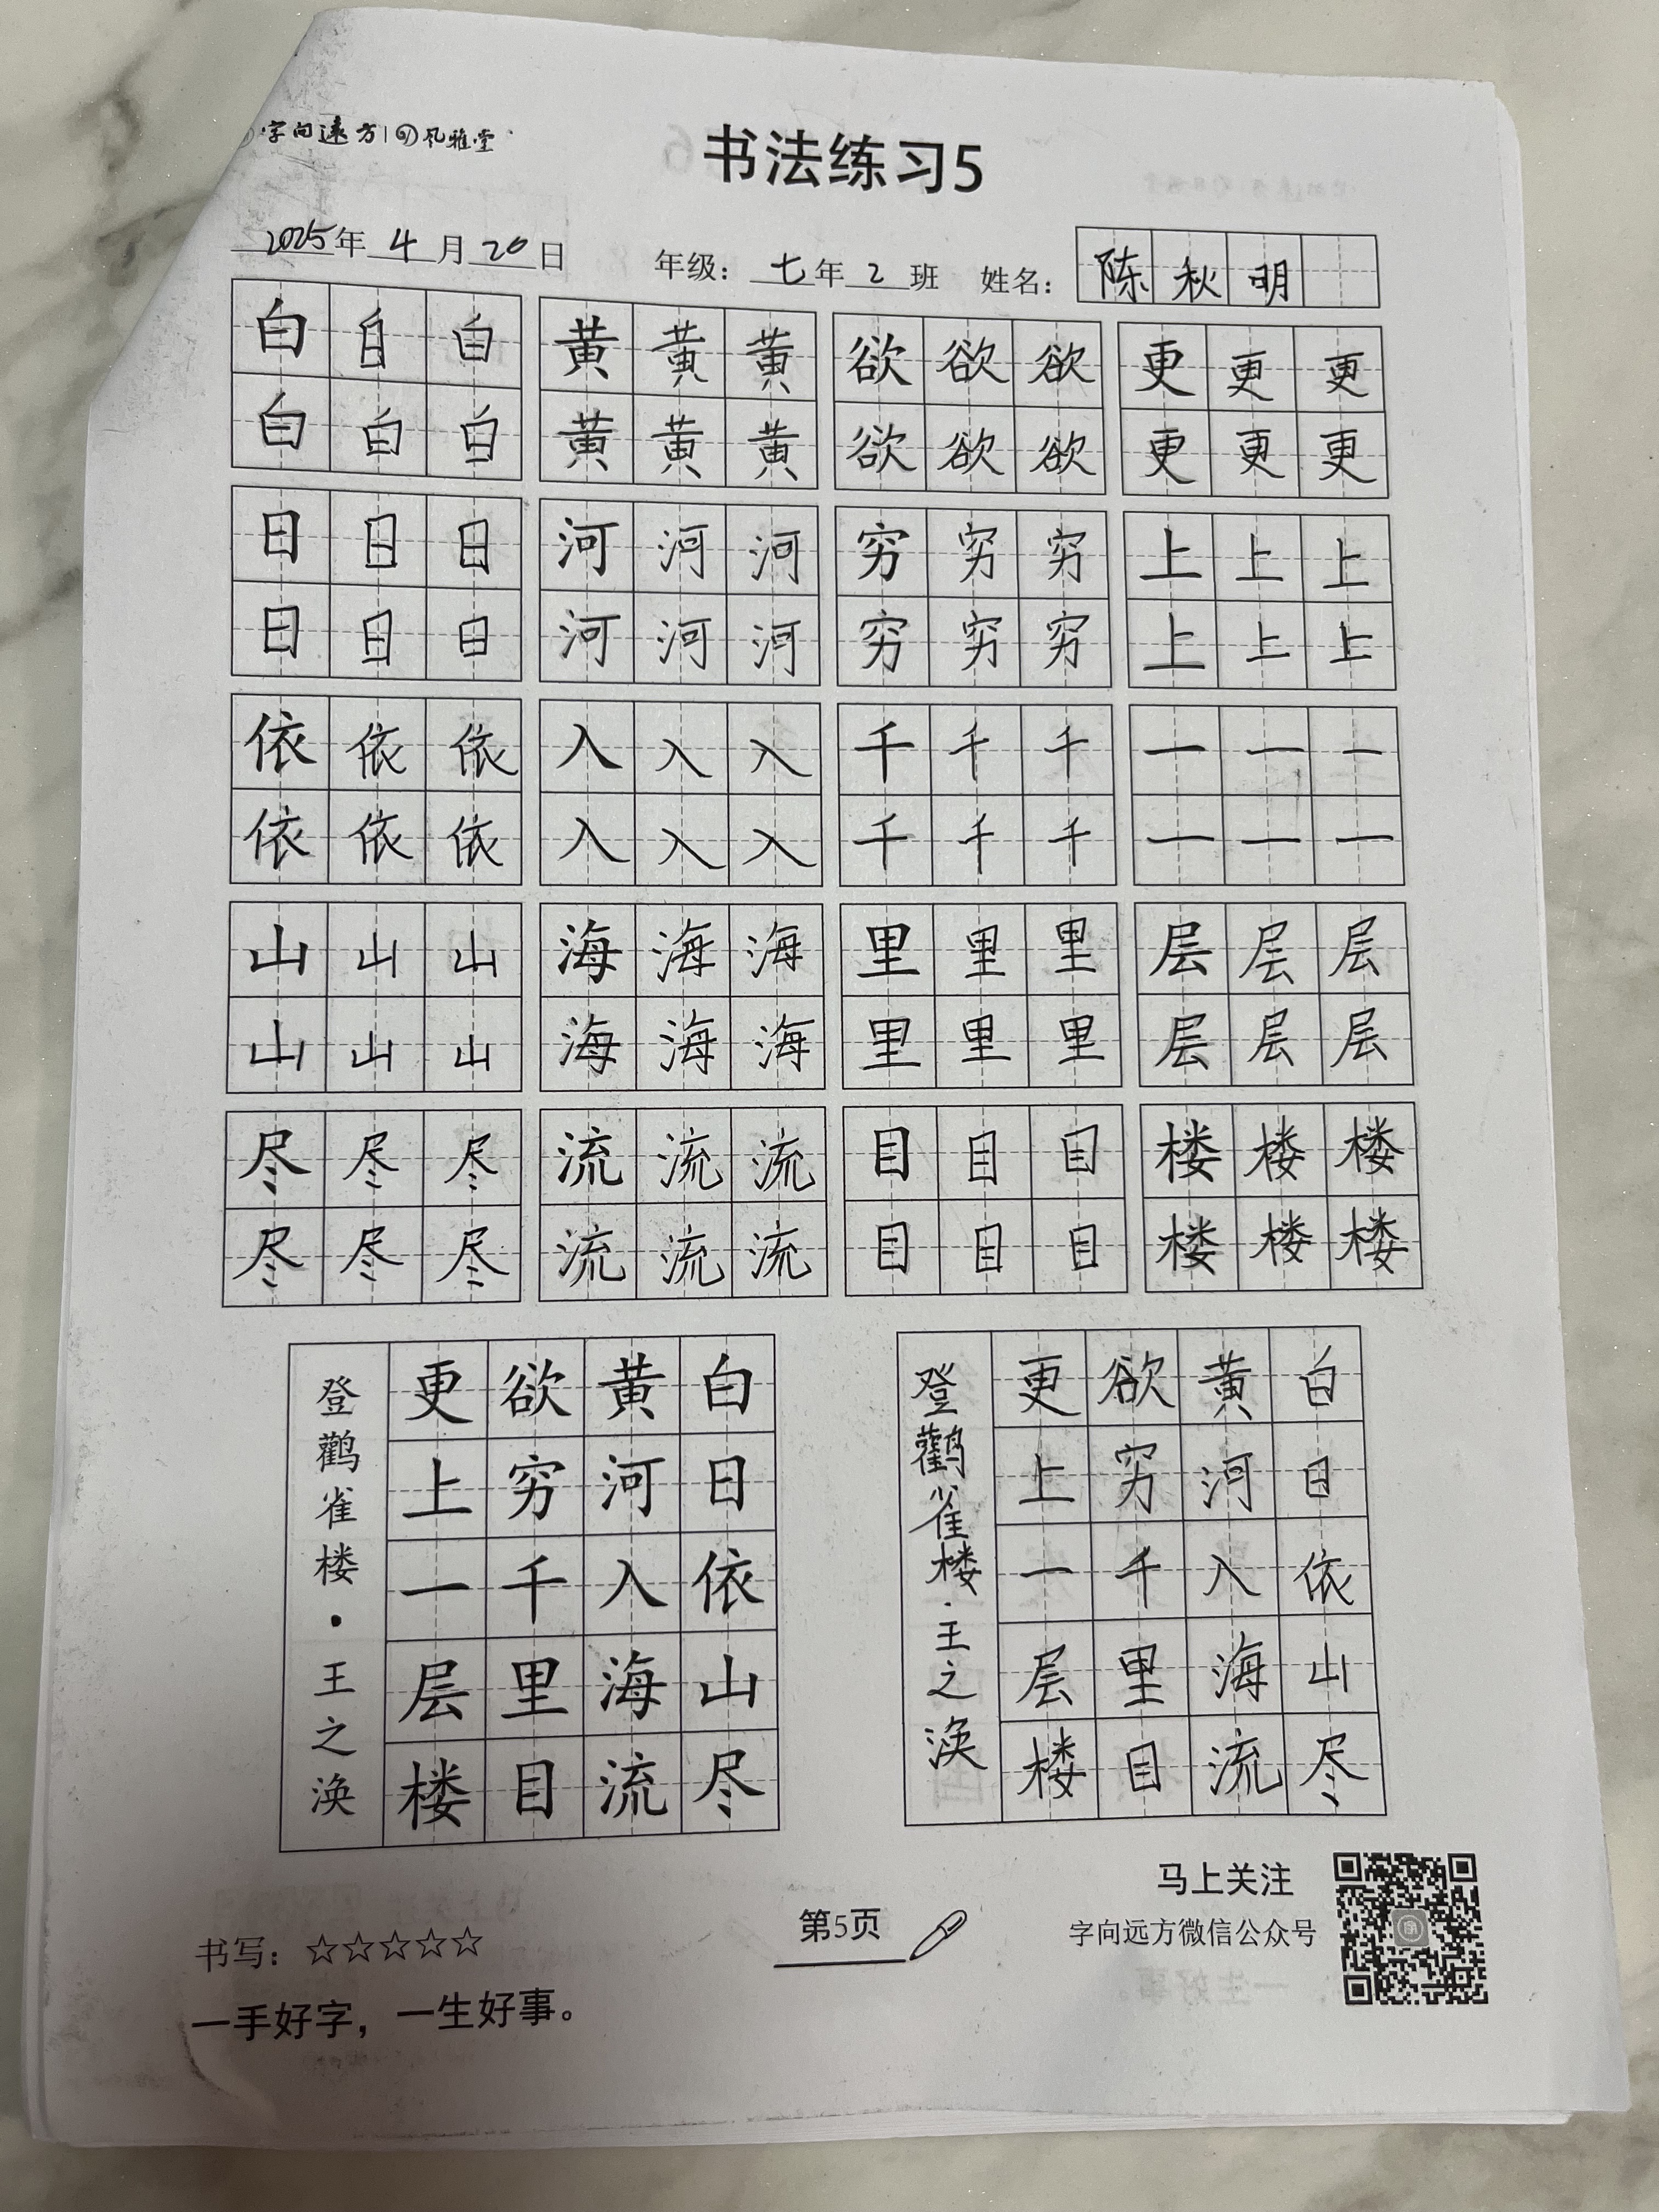 字向遠方 风雅堂
书法练习5
2025年4月20日 年级：七年2班 姓名：陈秋明
白白白 黄黄黄 欲欲欲 更更更
白白白 黄黄黄 欲欲欲 更更更
日日日 河河河 穷穷穷 上上上
日日日 河河河 穷穷穷 上上上
依依依 入入入 千千千 一一一
依依依 入入入 千千千 一一一
山山山 海海海 里里里 层层层
山山山 海海海 里里里 层层层
尽尽尽 流流流 目目目 楼楼楼
尽尽尽 流流流 目目目 楼楼楼
白日依山尽
黄河入海流
欲穷千里目
更上一层楼
登鹳雀楼·王之涣
白日依山尽
黄河入海流
欲穷千里目
更上一层楼
登鹳雀楼·王之涣
书写：☆☆☆☆☆
一手好字，一生好事。
第5页
马上关注
字向远方微信公众号